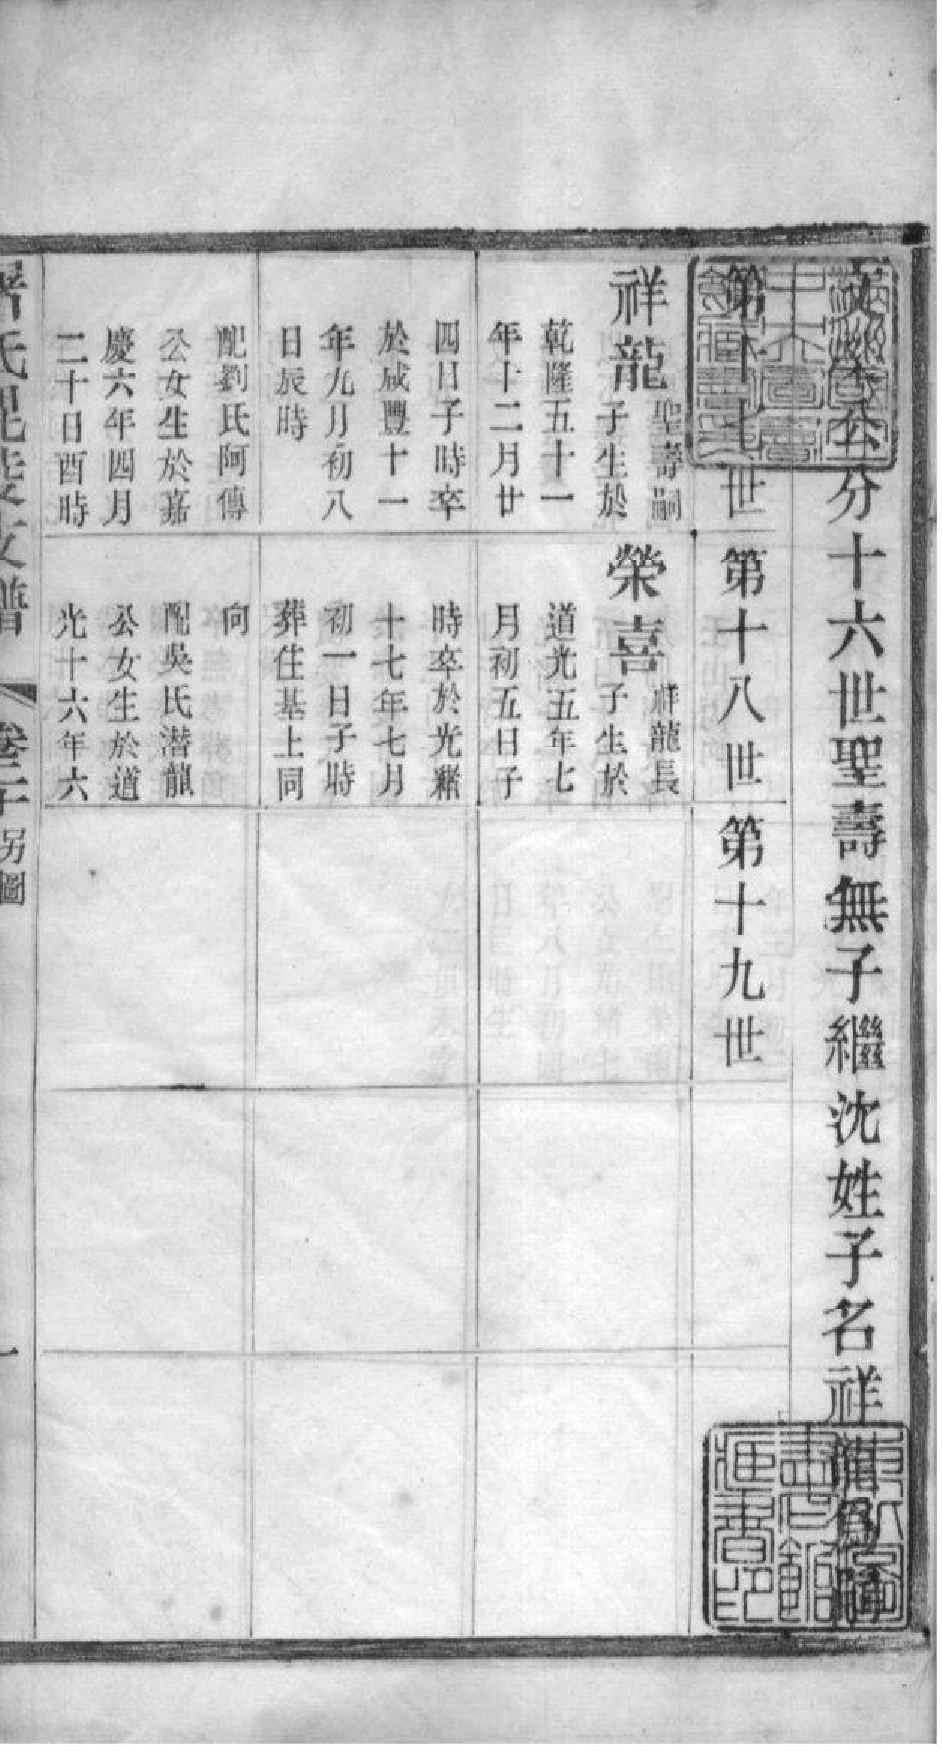 公分十六世聖壽無子繼沈姓子名祥龍爲嗣
第十七世
第十八世
第十九世
祥龍
聖壽嗣
子生於
乾隆五十一
年十二月廿
四日子時卒
於咸豐十一
年九月初八
日辰時
配劉氏阿傳
公女生於嘉
慶六年四月
二十日酉時
榮喜
祥龍長
子生於
道光五年七
月初五日子
時卒於光緒
十七年七月
初一日子時
葬住基上同
向
配吳氏潜龍
公女生於道
光十六年六
氏毘陵支譜
卷二十
另圖
一